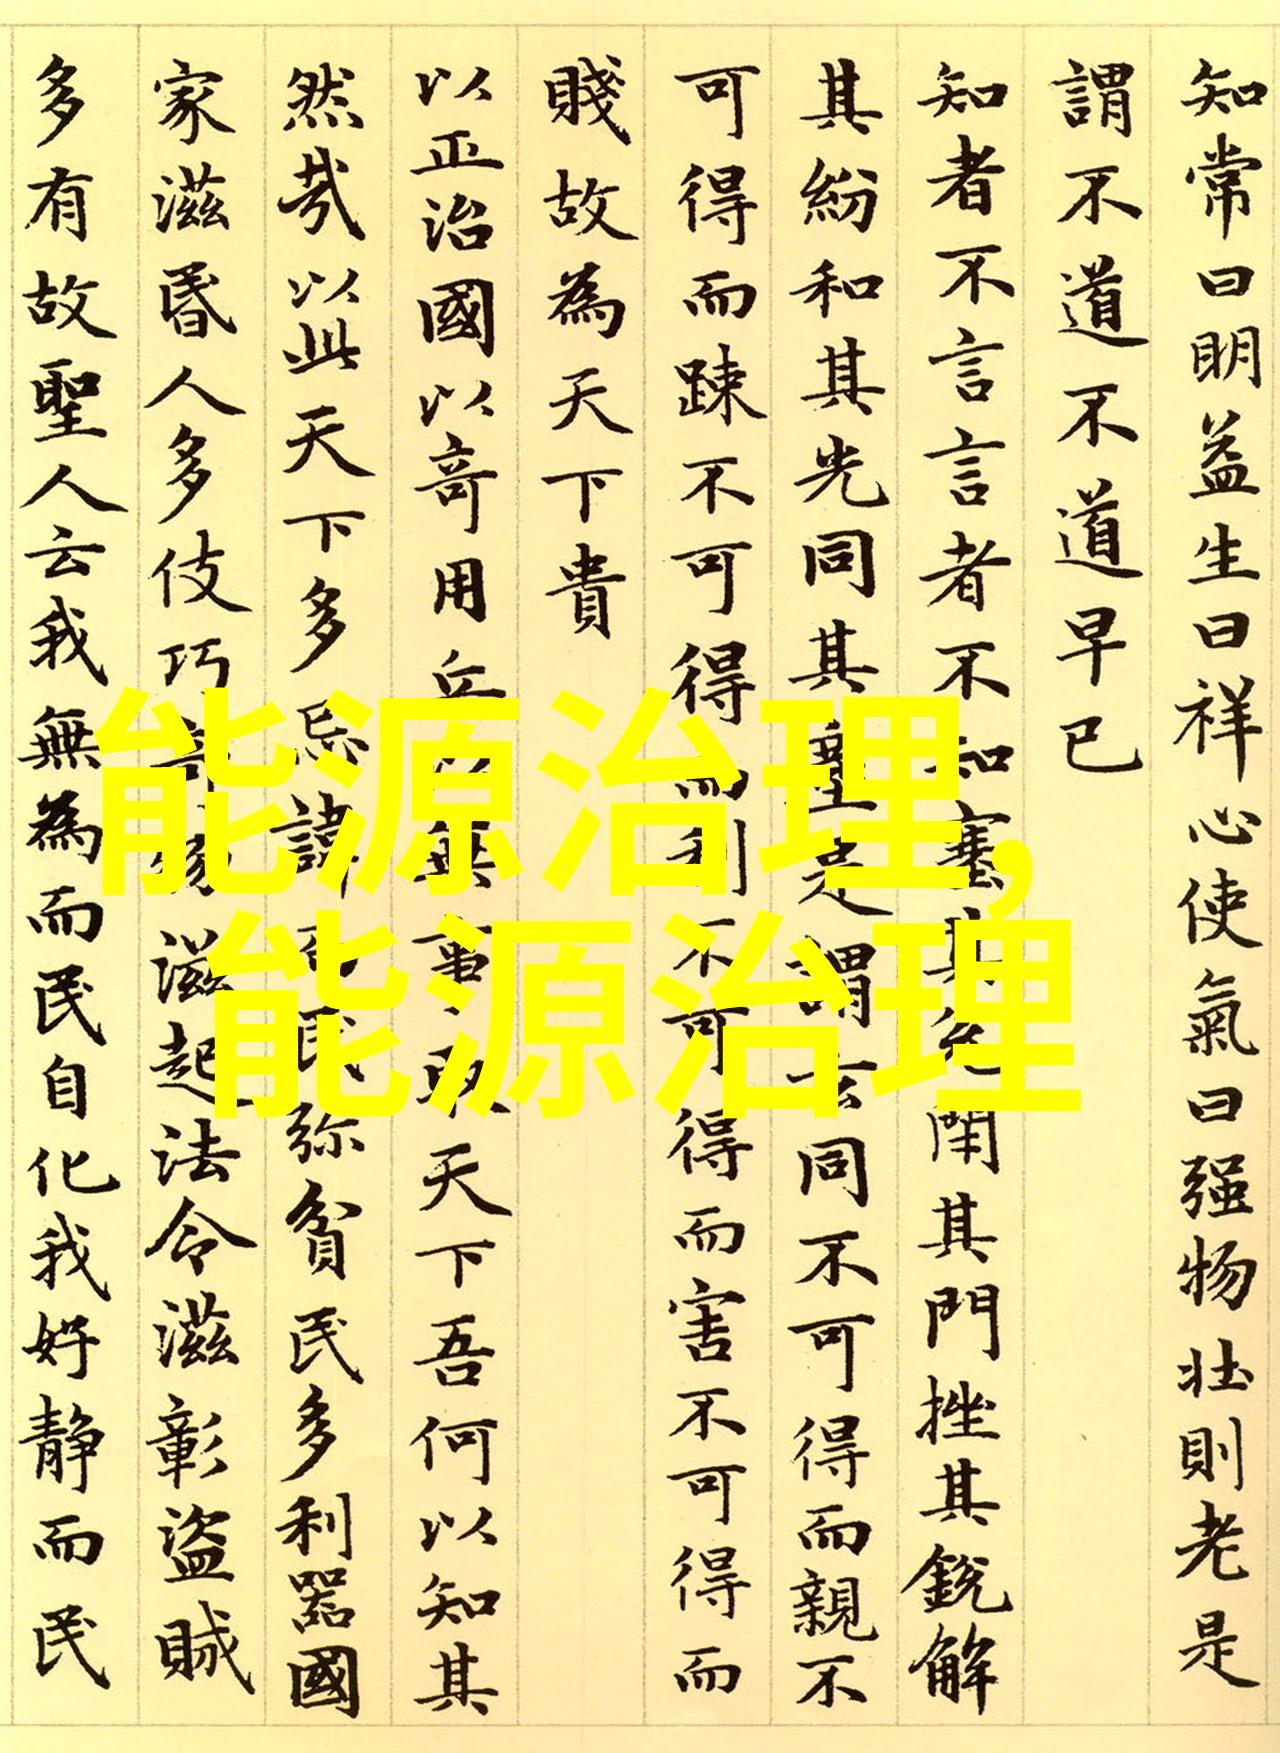 知常曰明益生曰祥心使氣曰强物壮則老是
謂不道不道早已
知者不言言者不知塞其兊閇其門挫其銳解
其紛和其光同其塵是謂玄同不可得而親不
可得而踈不可得而利不可得而害不可得而
賤故為天下貴
以正治國以竒用兵以無事取天下吾何以知其
然㢤以此天下多忌諱而民弥貧民多利器國
家滋昬人多伎巧竒物滋起法令滋彰盗賊
多有故聖人云我無為而民自化我好静而民
能源治理,
能源治理